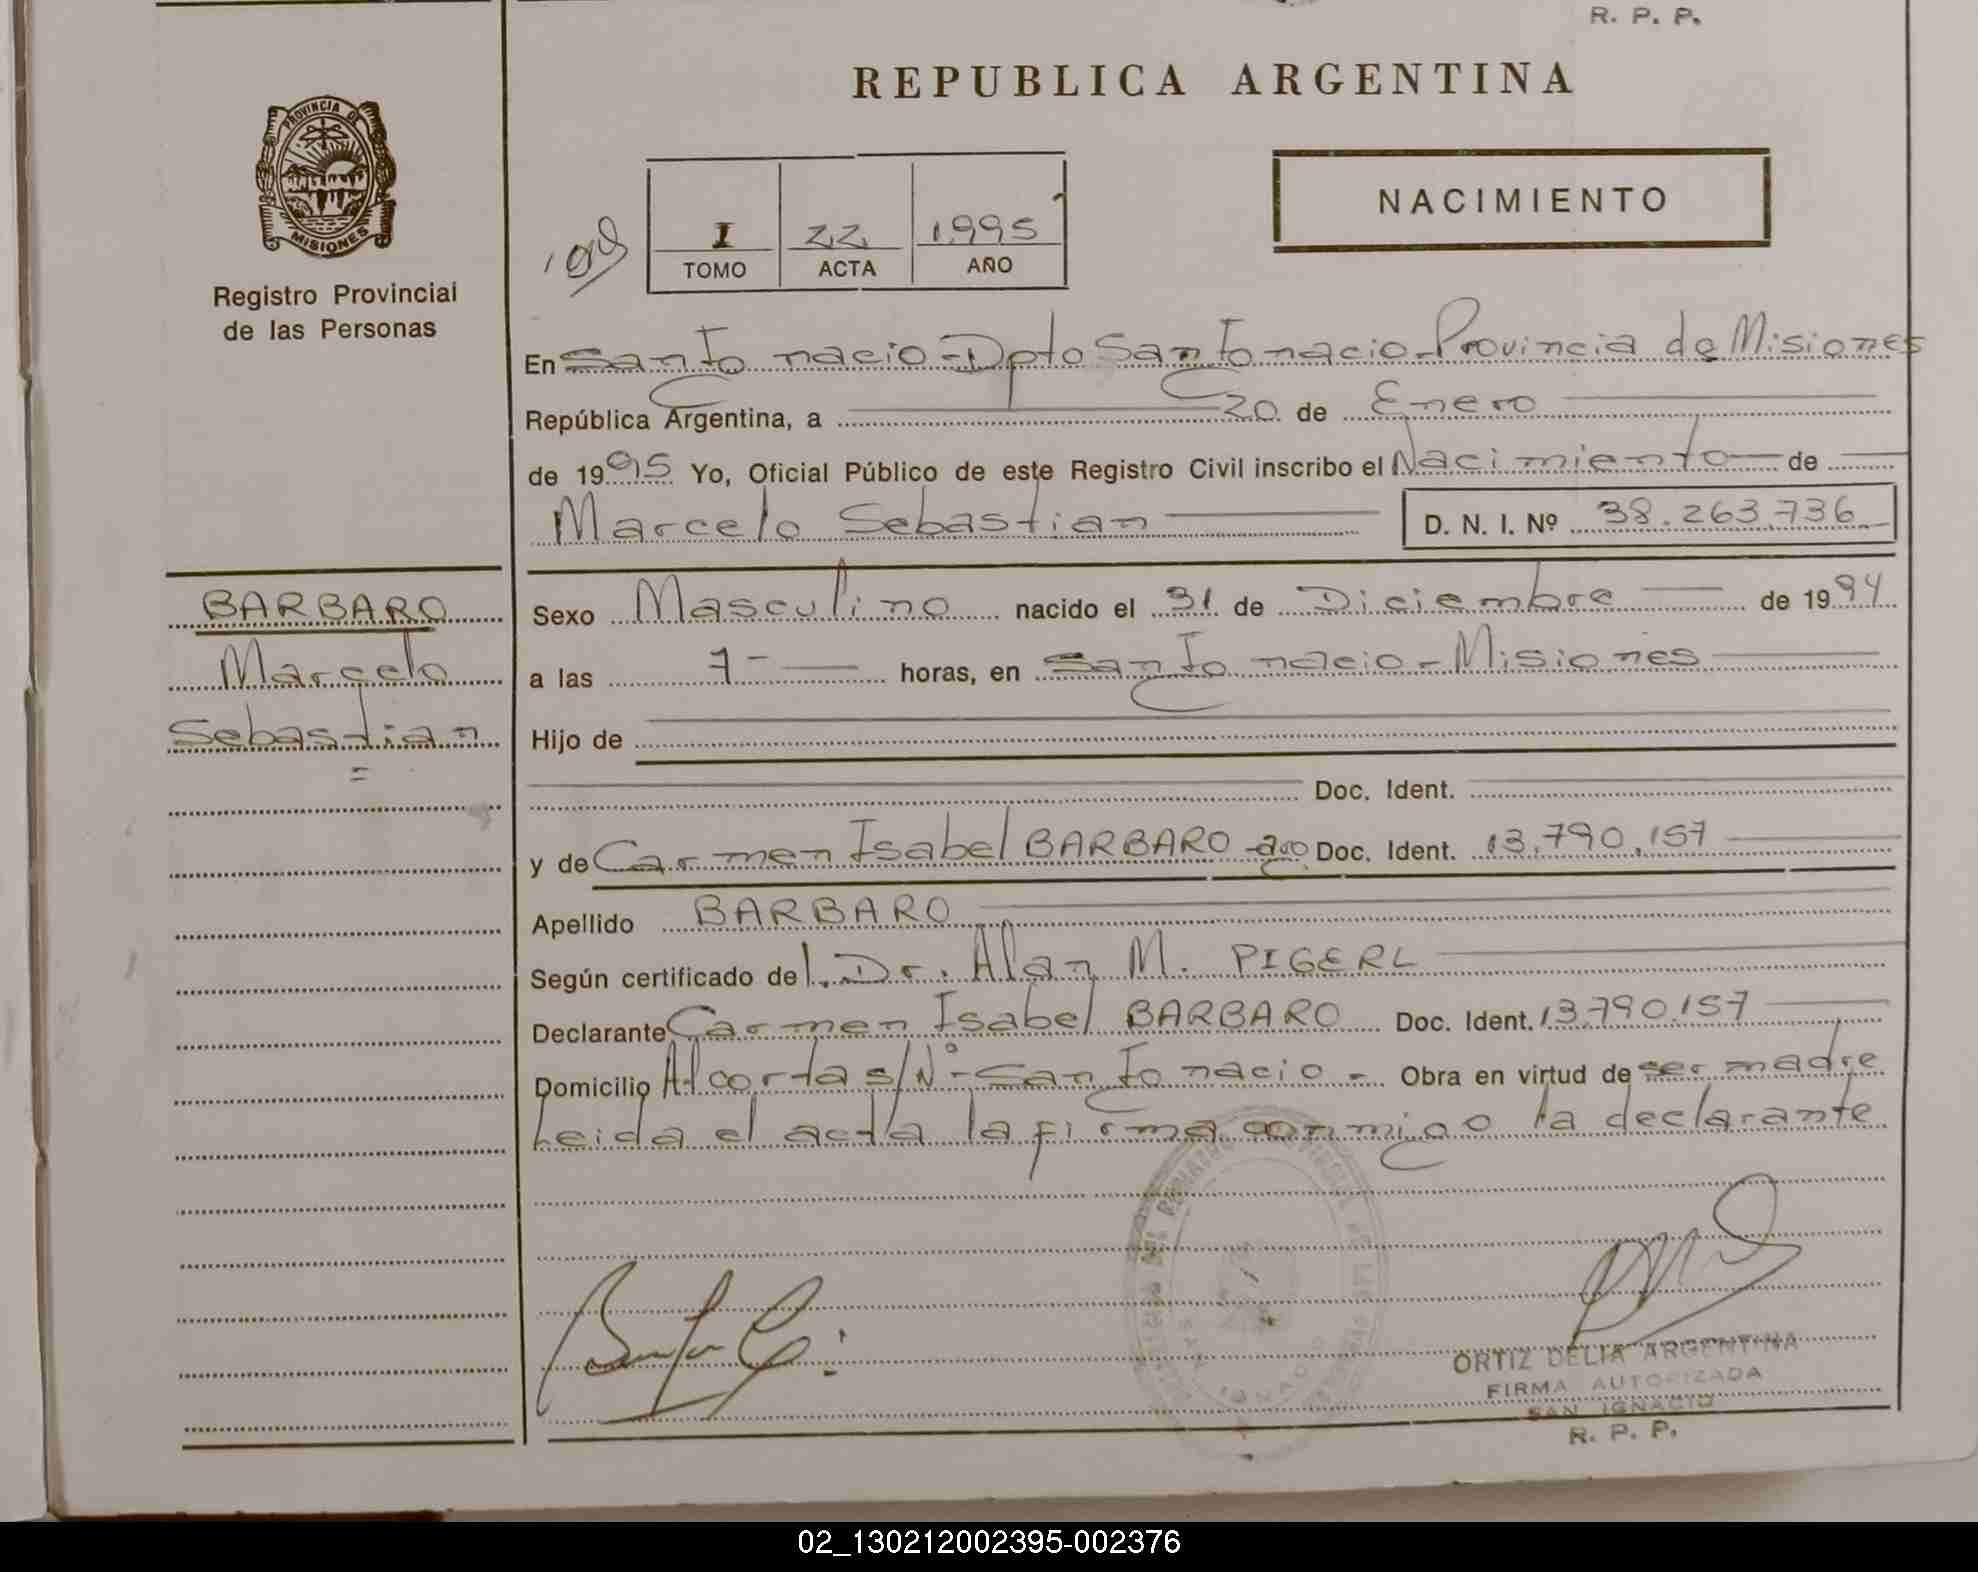 R. P. P.
REPUBLICA ARGENTINA
PROVINCIA DE
MISIONES
Registro Provincial
de las Personas
I 22 1995
TOMO ACTA AÑO
NACIMIENTO
En San Ignacio - Dpto San Ignacio - Provincia de Misiones
República Argentina, a 20 de Enero
de 1995 Yo, Oficial Público de este Registro Civil inscribo el Nacimiento de
Marcelo Sebastian D. N. I. Nº 38.263.736
BARBARO
Marcelo
Sebastian
=
Sexo Masculino nacido el 31 de Diciembre de 1994
a las 7- horas, en San Ignacio - Misiones
Hijo de
Doc. Ident.
y de Carmen Isabel BARBARO Doc. Ident. 13.790.157
Apellido BARBARO
Según certificado del Dr. Alan M. PIGERL
Declarante Carmen Isabel BARBARO Doc. Ident. 13.790.157
Domicilio Alcorta s/Nº - San Ignacio - Obra en virtud de ser madre
Leida el acta la firma conmigo la declarante
ORTIZ DELIA ARGENTINA
FIRMA AUTORIZADA
SAN IGNACIO
R. P. P.
02_130212002395-002376